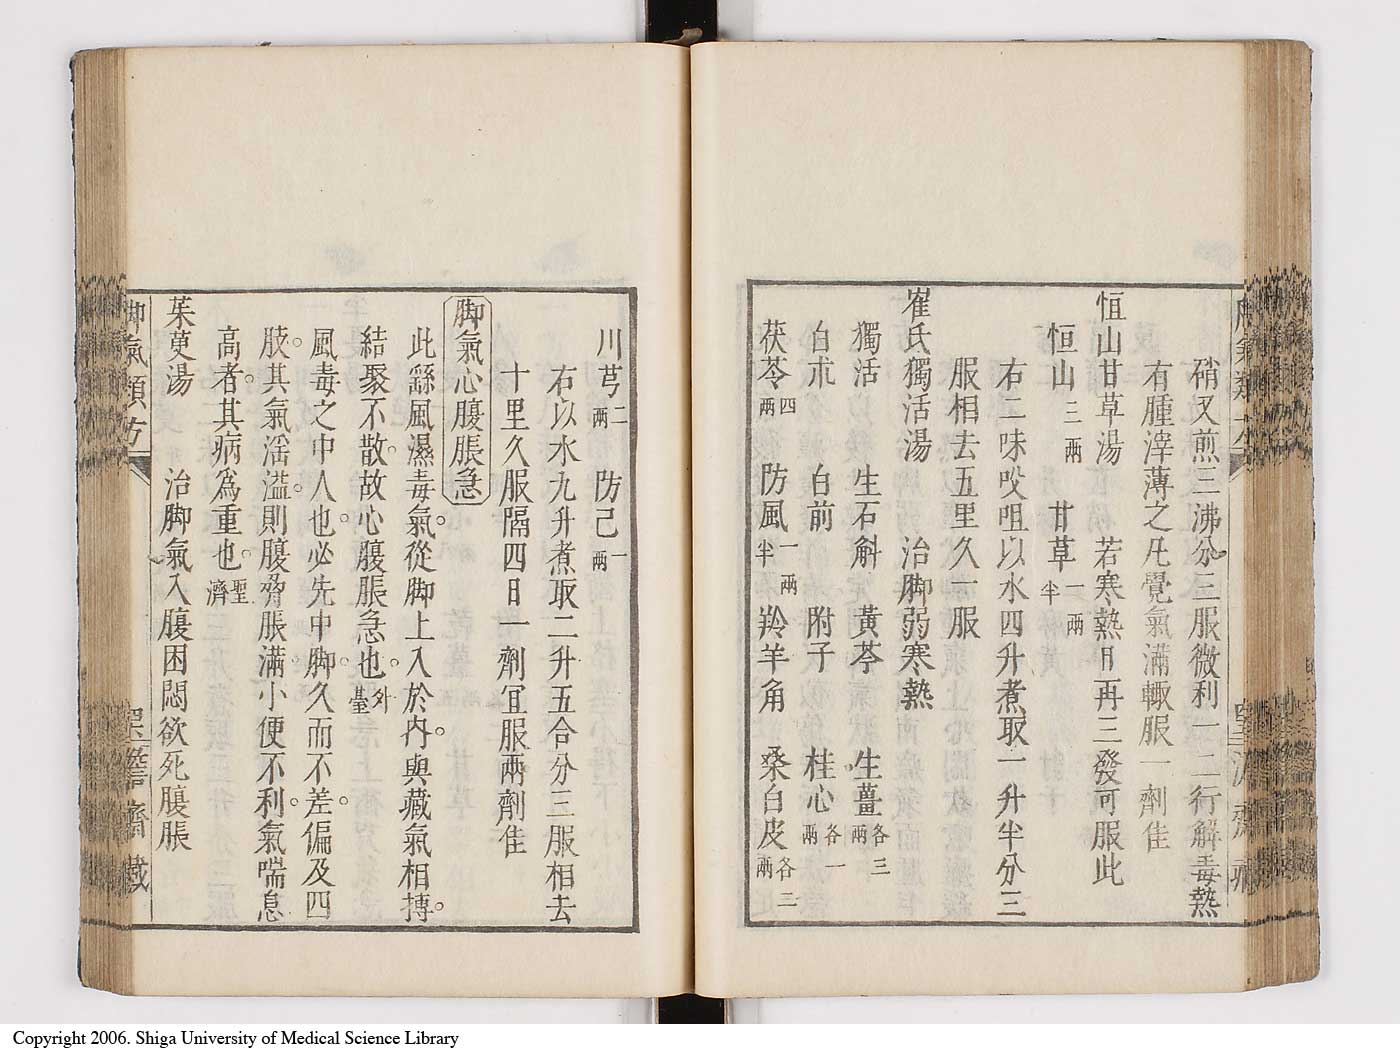 硝又煎三沸分三服微利一二行解毒熱
有腫滓薄之凡覺氣滿輙服一劑佳
恒山甘草湯 若寒熱日再三發可服此
恒山三兩 甘草一兩半
右二味㕮咀以水四升煮取一升半分三
服相去五里久一服
崔氏獨活湯 治脚弱寒熱
獨活 生石斛 黃芩 生薑各三兩
白朮 白前 附子 桂心各一兩
茯苓四兩 防風一兩半 羚羊角 桑白皮各三兩
川芎二兩 防己一兩
右以水九升煮取二升五合分三服相去
十里久服隔四日一劑冝服兩劑佳
脚氣心腹脹急
此繇風濕毒氣。從脚上入於內。與藏氣相摶。
結聚不散。故心腹脹急也。外臺
風毒之中人也。必先中脚。久而不差。偏及四
肢。其氣滛溢。則腹脅脹滿。小便不利。氣喘息
高者。其病爲重也。聖濟
茱萸湯 治脚氣入腹困悶欲死腹脹
脚氣類方 聖濟齋藏
Copyright 2006. Shiga University of Medical Science Library